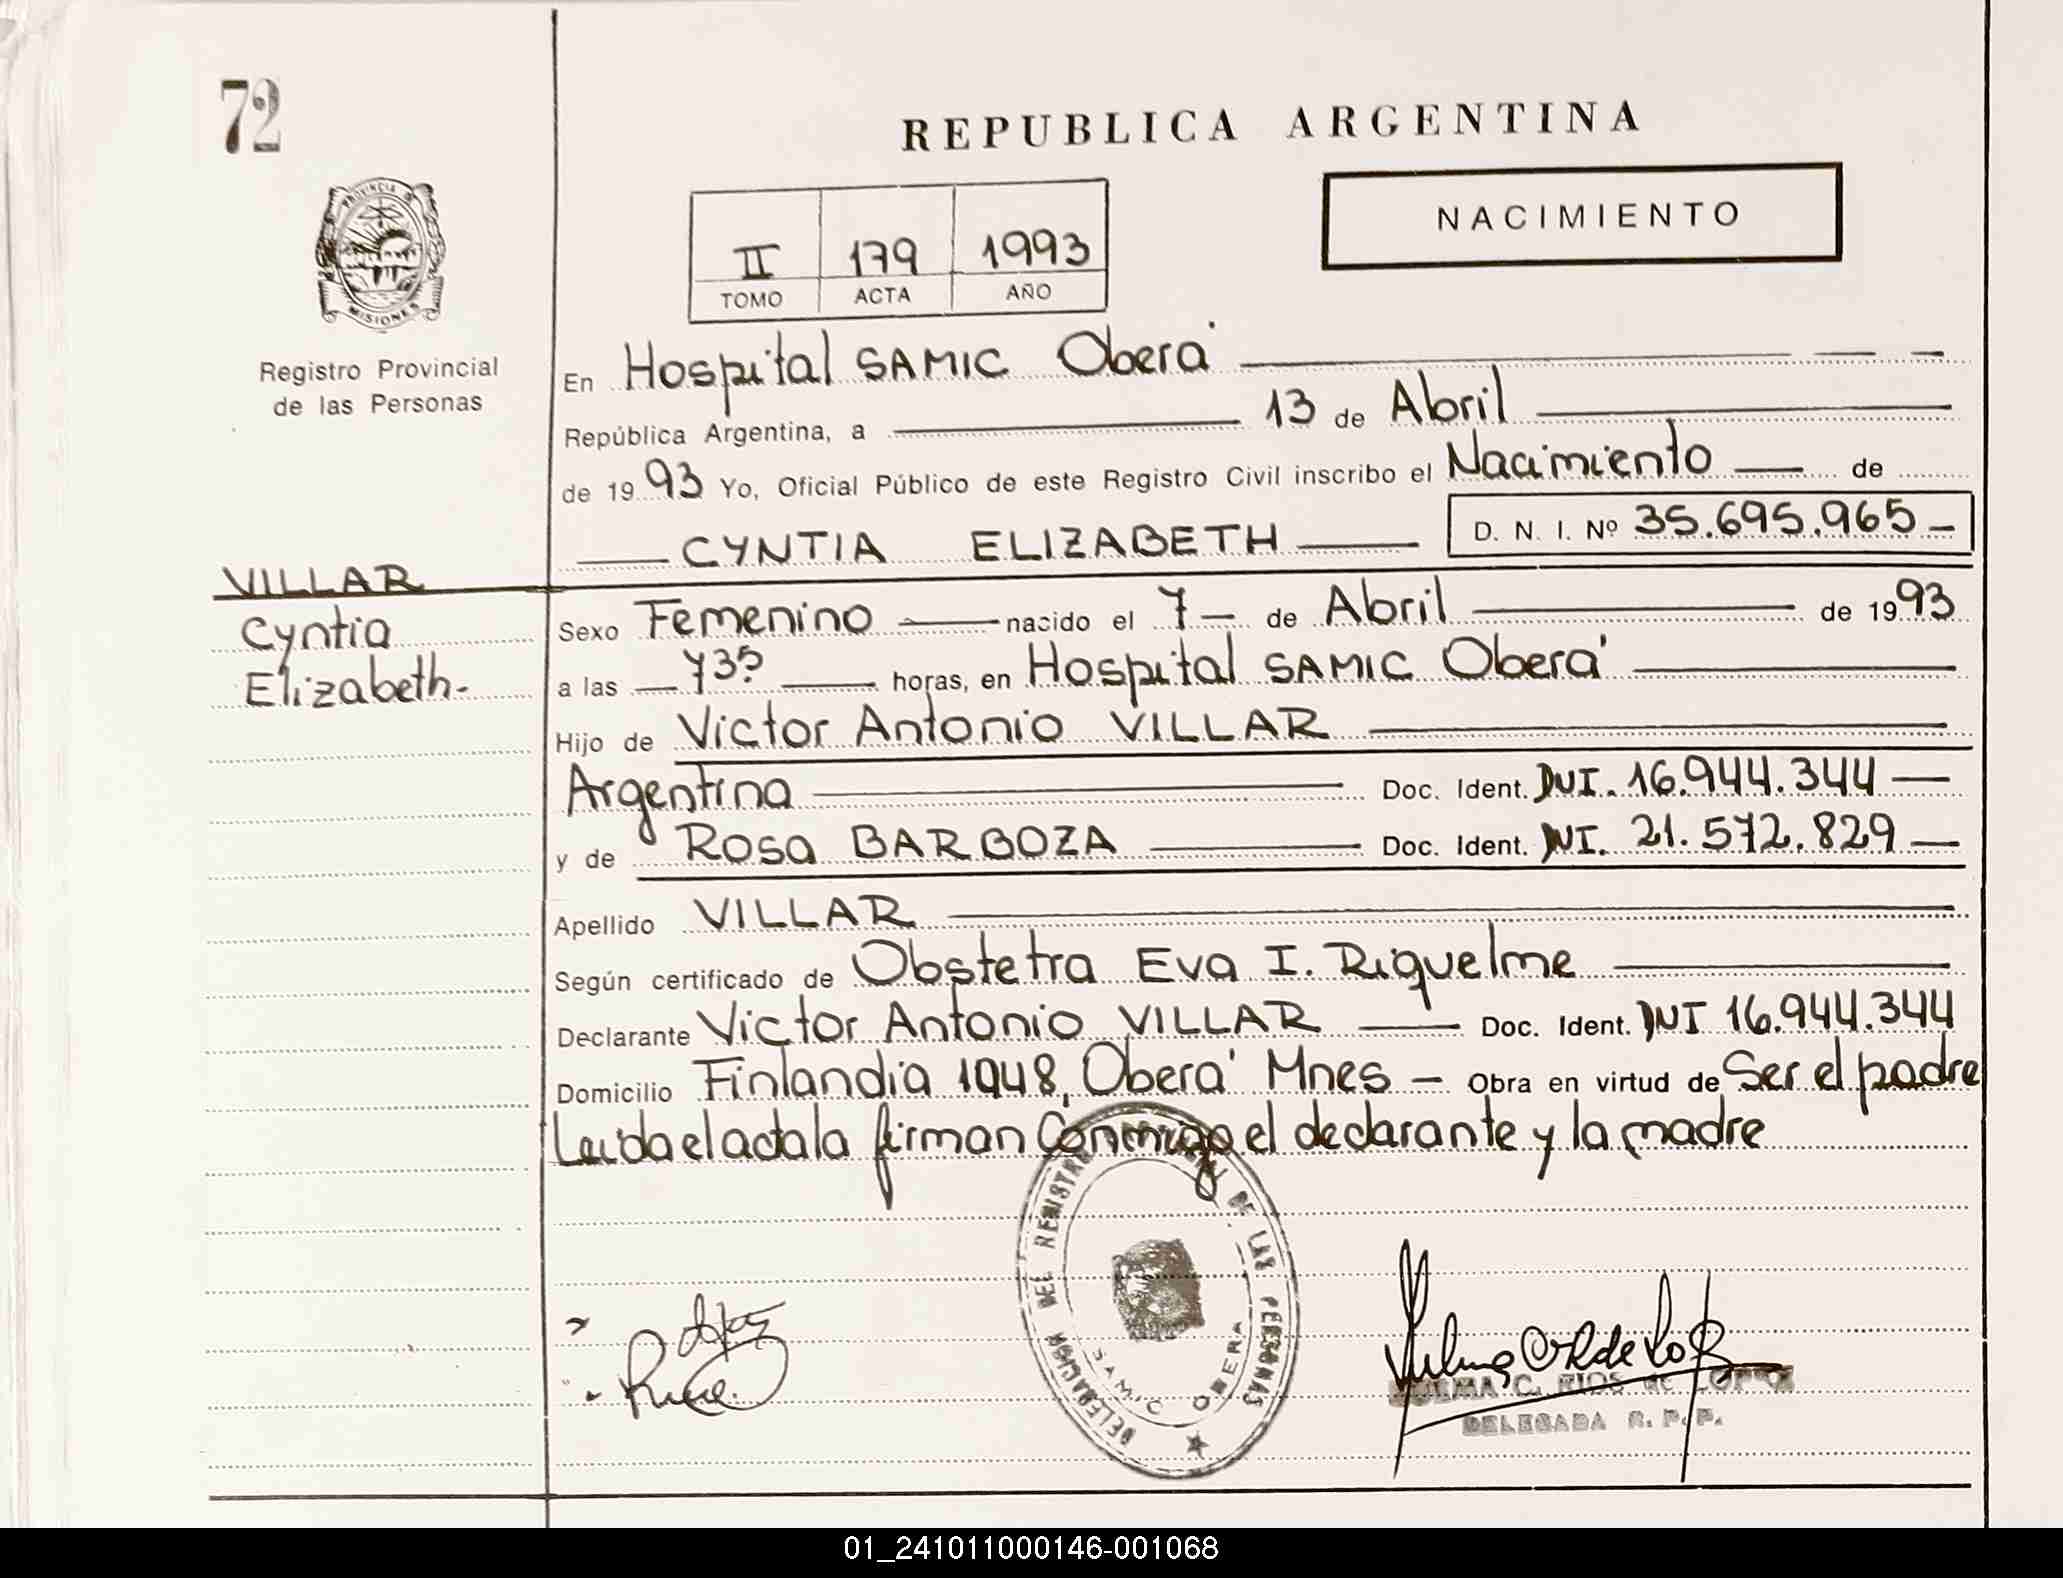 72
REPUBLICA ARGENTINA
NACIMIENTO
II 179 1993
TOMO ACTA AÑO
PROVINCIA DE
MISIONES
Registro Provincial
de las Personas
En Hospital SAMIC Oberá
República Argentina, a 13 de Abril
de 1993 Yo, Oficial Público de este Registro Civil inscribo el Nacimiento de
CYNTIA ELIZABETH D. N. I. Nº 35.695.965
VILLAR
Cyntia
Elizabeth.
Sexo Femenino nacido el 7 de Abril de 1993
a las 7 30 horas, en Hospital SAMIC Oberá
Hijo de Victor Antonio VILLAR
Argentina Doc. Ident. DNI. 16.944.344
y de Rosa BARBOZA Doc. Ident. DNI. 21.572.829
Apellido VILLAR
Según certificado de Obstetra Eva I. Riquelme
Declarante Victor Antonio VILLAR Doc. Ident. DNI 16.944.344
Domicilio Finlandia 1948, Oberá Mnes - Obra en virtud de Ser el padre
Leida el acta la firman Conmigo el declarante y la madre
DELEGACION DEL REGISTRO DE LAS PERSONAS
SAMIC OBERA
C. RIOS de LOPEZ
DELEGADA R. P. P.
01_241011000146-001068